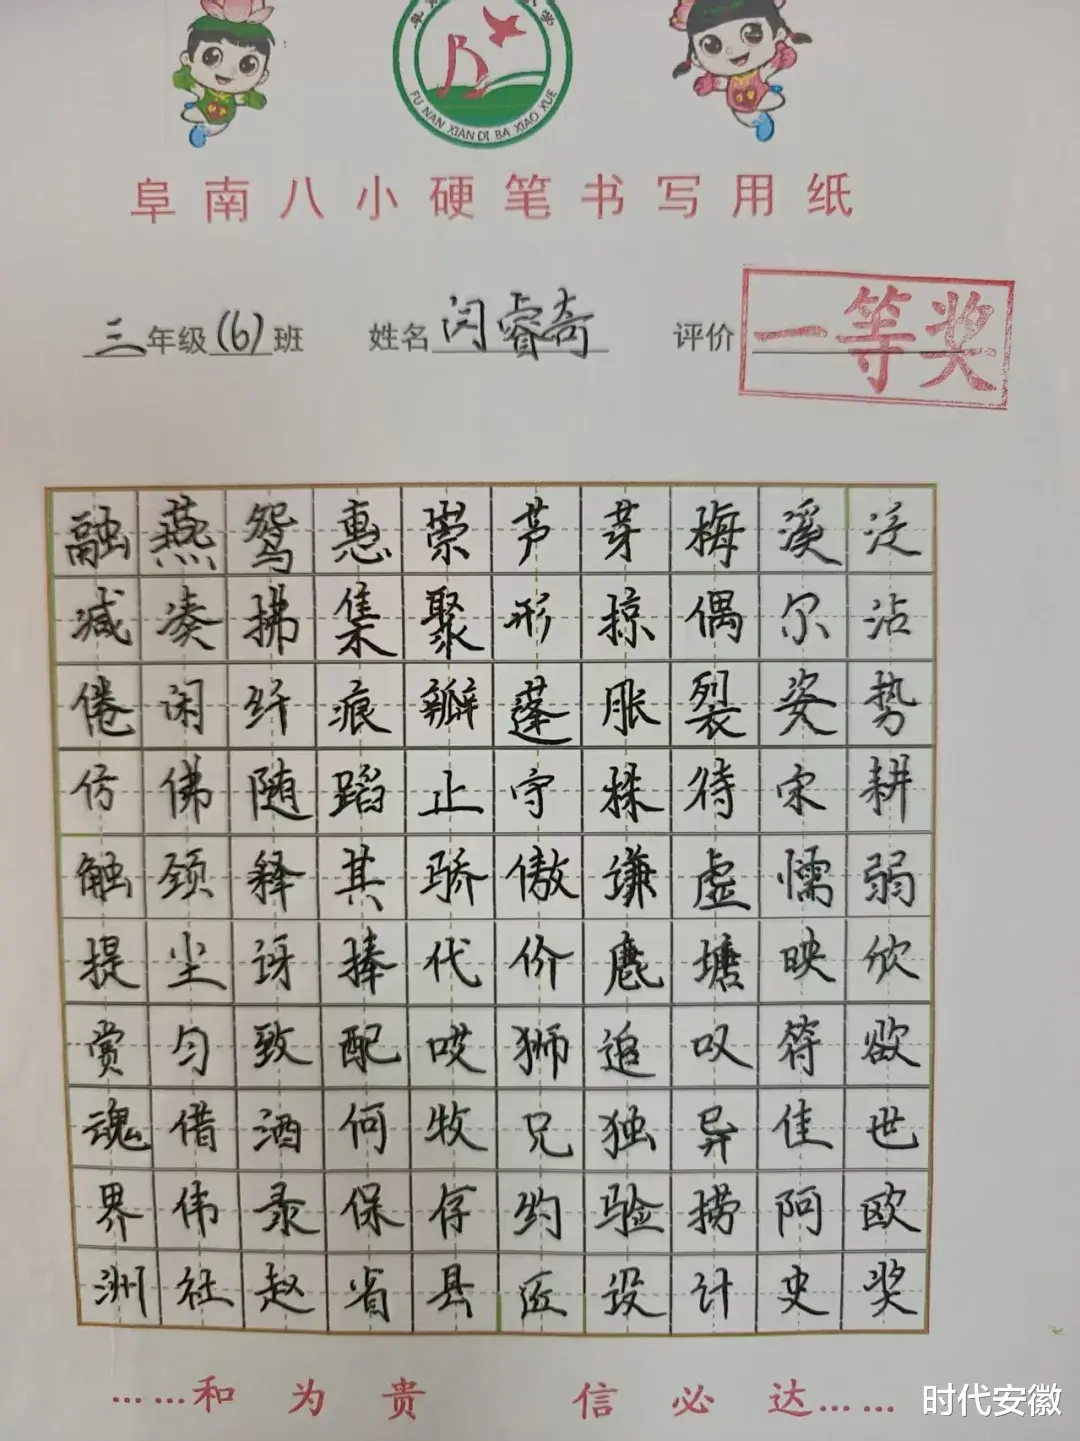 FU NAN XIAN DI BA XIAO XUE
阜南八小硬笔书写用纸
三年级(6)班 姓名闫睿奇 评价一等奖
融燕鸳惠崇芦芽梅溪泛
减凑拂集聚形掠偶尔沾
倦闲纤痕瓣蓬胀裂姿势
仿佛随蹈止守株待宋耕
触颈释其骄傲谦虚懦弱
提尘讶捧代价鹿塘映欣
赏匀致配哎狮追叹符欲
魂借酒何牧兄独异佳世
界伟录保存约验捞阿欧
洲社赵省县匠设计史奖
……和为贵 信必达……
时代安徽